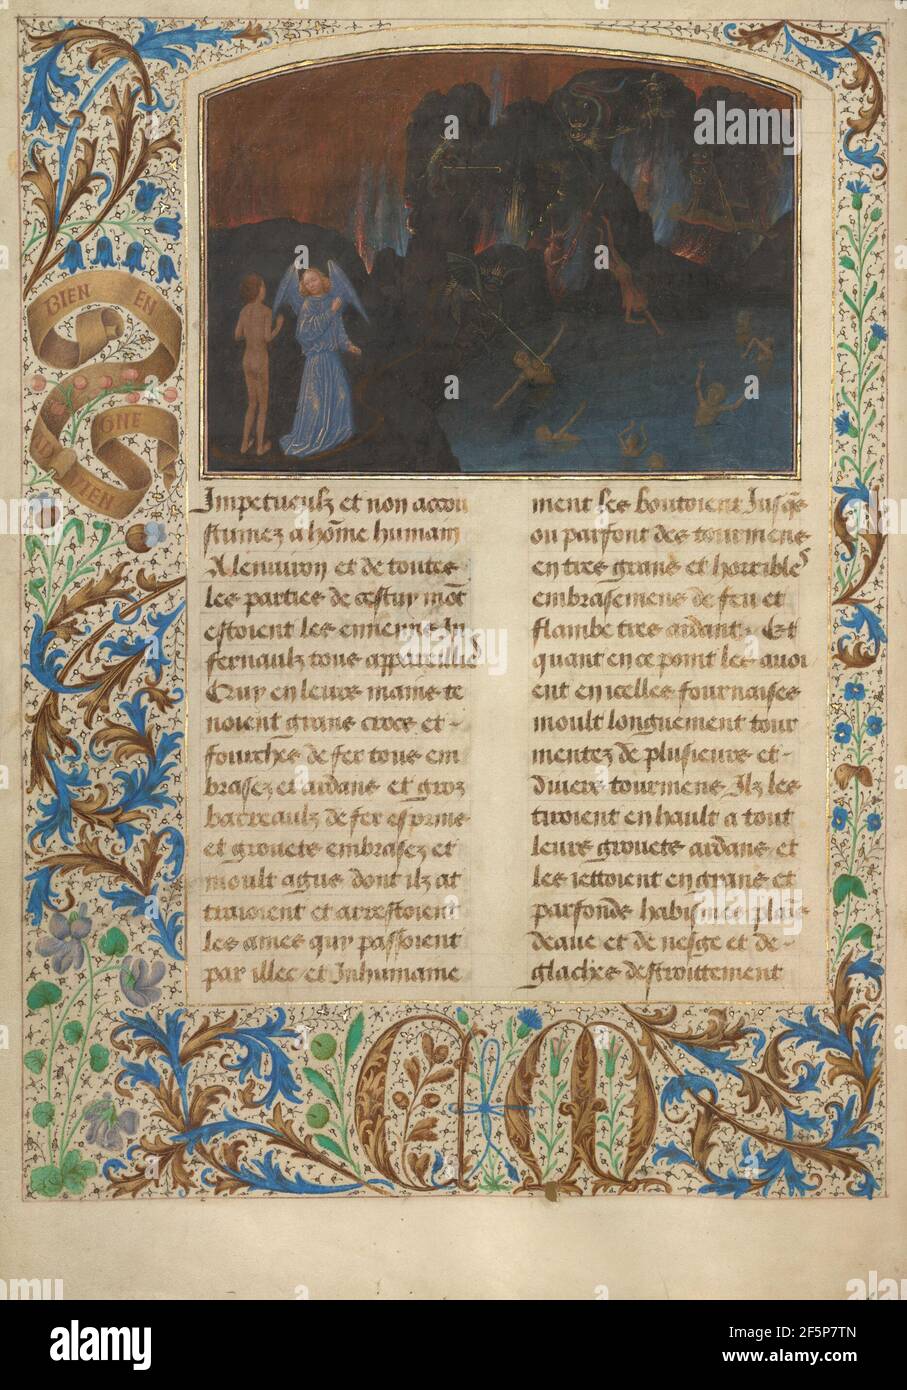 BIEN EN
GNE
VIEN
Impetueulz et non accou
stumez a hōme humain
A lenuiron et de toutes
les parties de cestuy mōt
estoient les ennemis In
fernaulz tous appareilliés
Quy en leurs mains te
noient grans crocs et
fourches de fer tous em
brasez et ardans et groz
barreaulz de fer es prins
et grouets embrasez et
moult agus dont ilz at
traioient et arrestoient
les ames quy passoient
par illec et Inhumaine
ment les boutoient Jusqs
ou parfont des tourmens
en tres grans et horribles
embrasemens de feu et
flambe tres ardant. Et
quant en ce point les auoi
ent en icelles fournaises
moult longuement tour
mentez de plusieurs et
diuers tourmens Ilz les
tiroient en hault a tout
leurs grouets ardans et
les iettoient en grans et
parfonds habismes plains
deaue et de neige et de
glaches destroittement
alamy
Image ID: 2F5P7TN
www.alamy.com